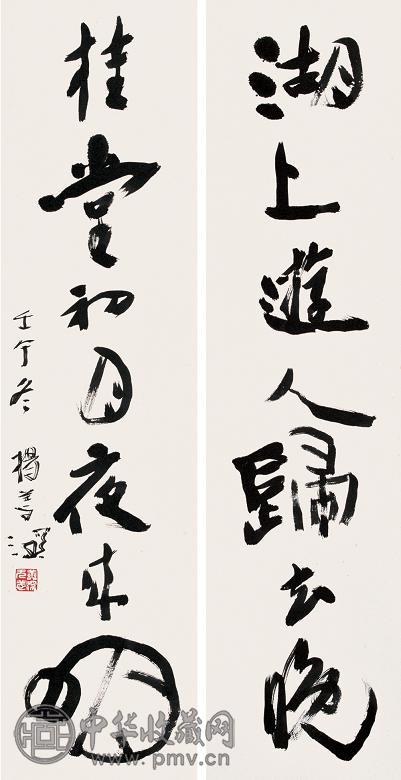 湖上遊人歸去晚
桂堂初月夜來明
壬午冬 楊善深
中华收藏网
www.pmv.cn